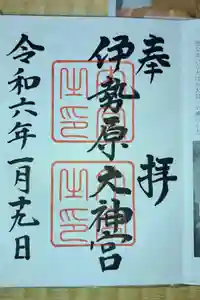 奉拝
伊勢原大神宮
令和六年一月十九日